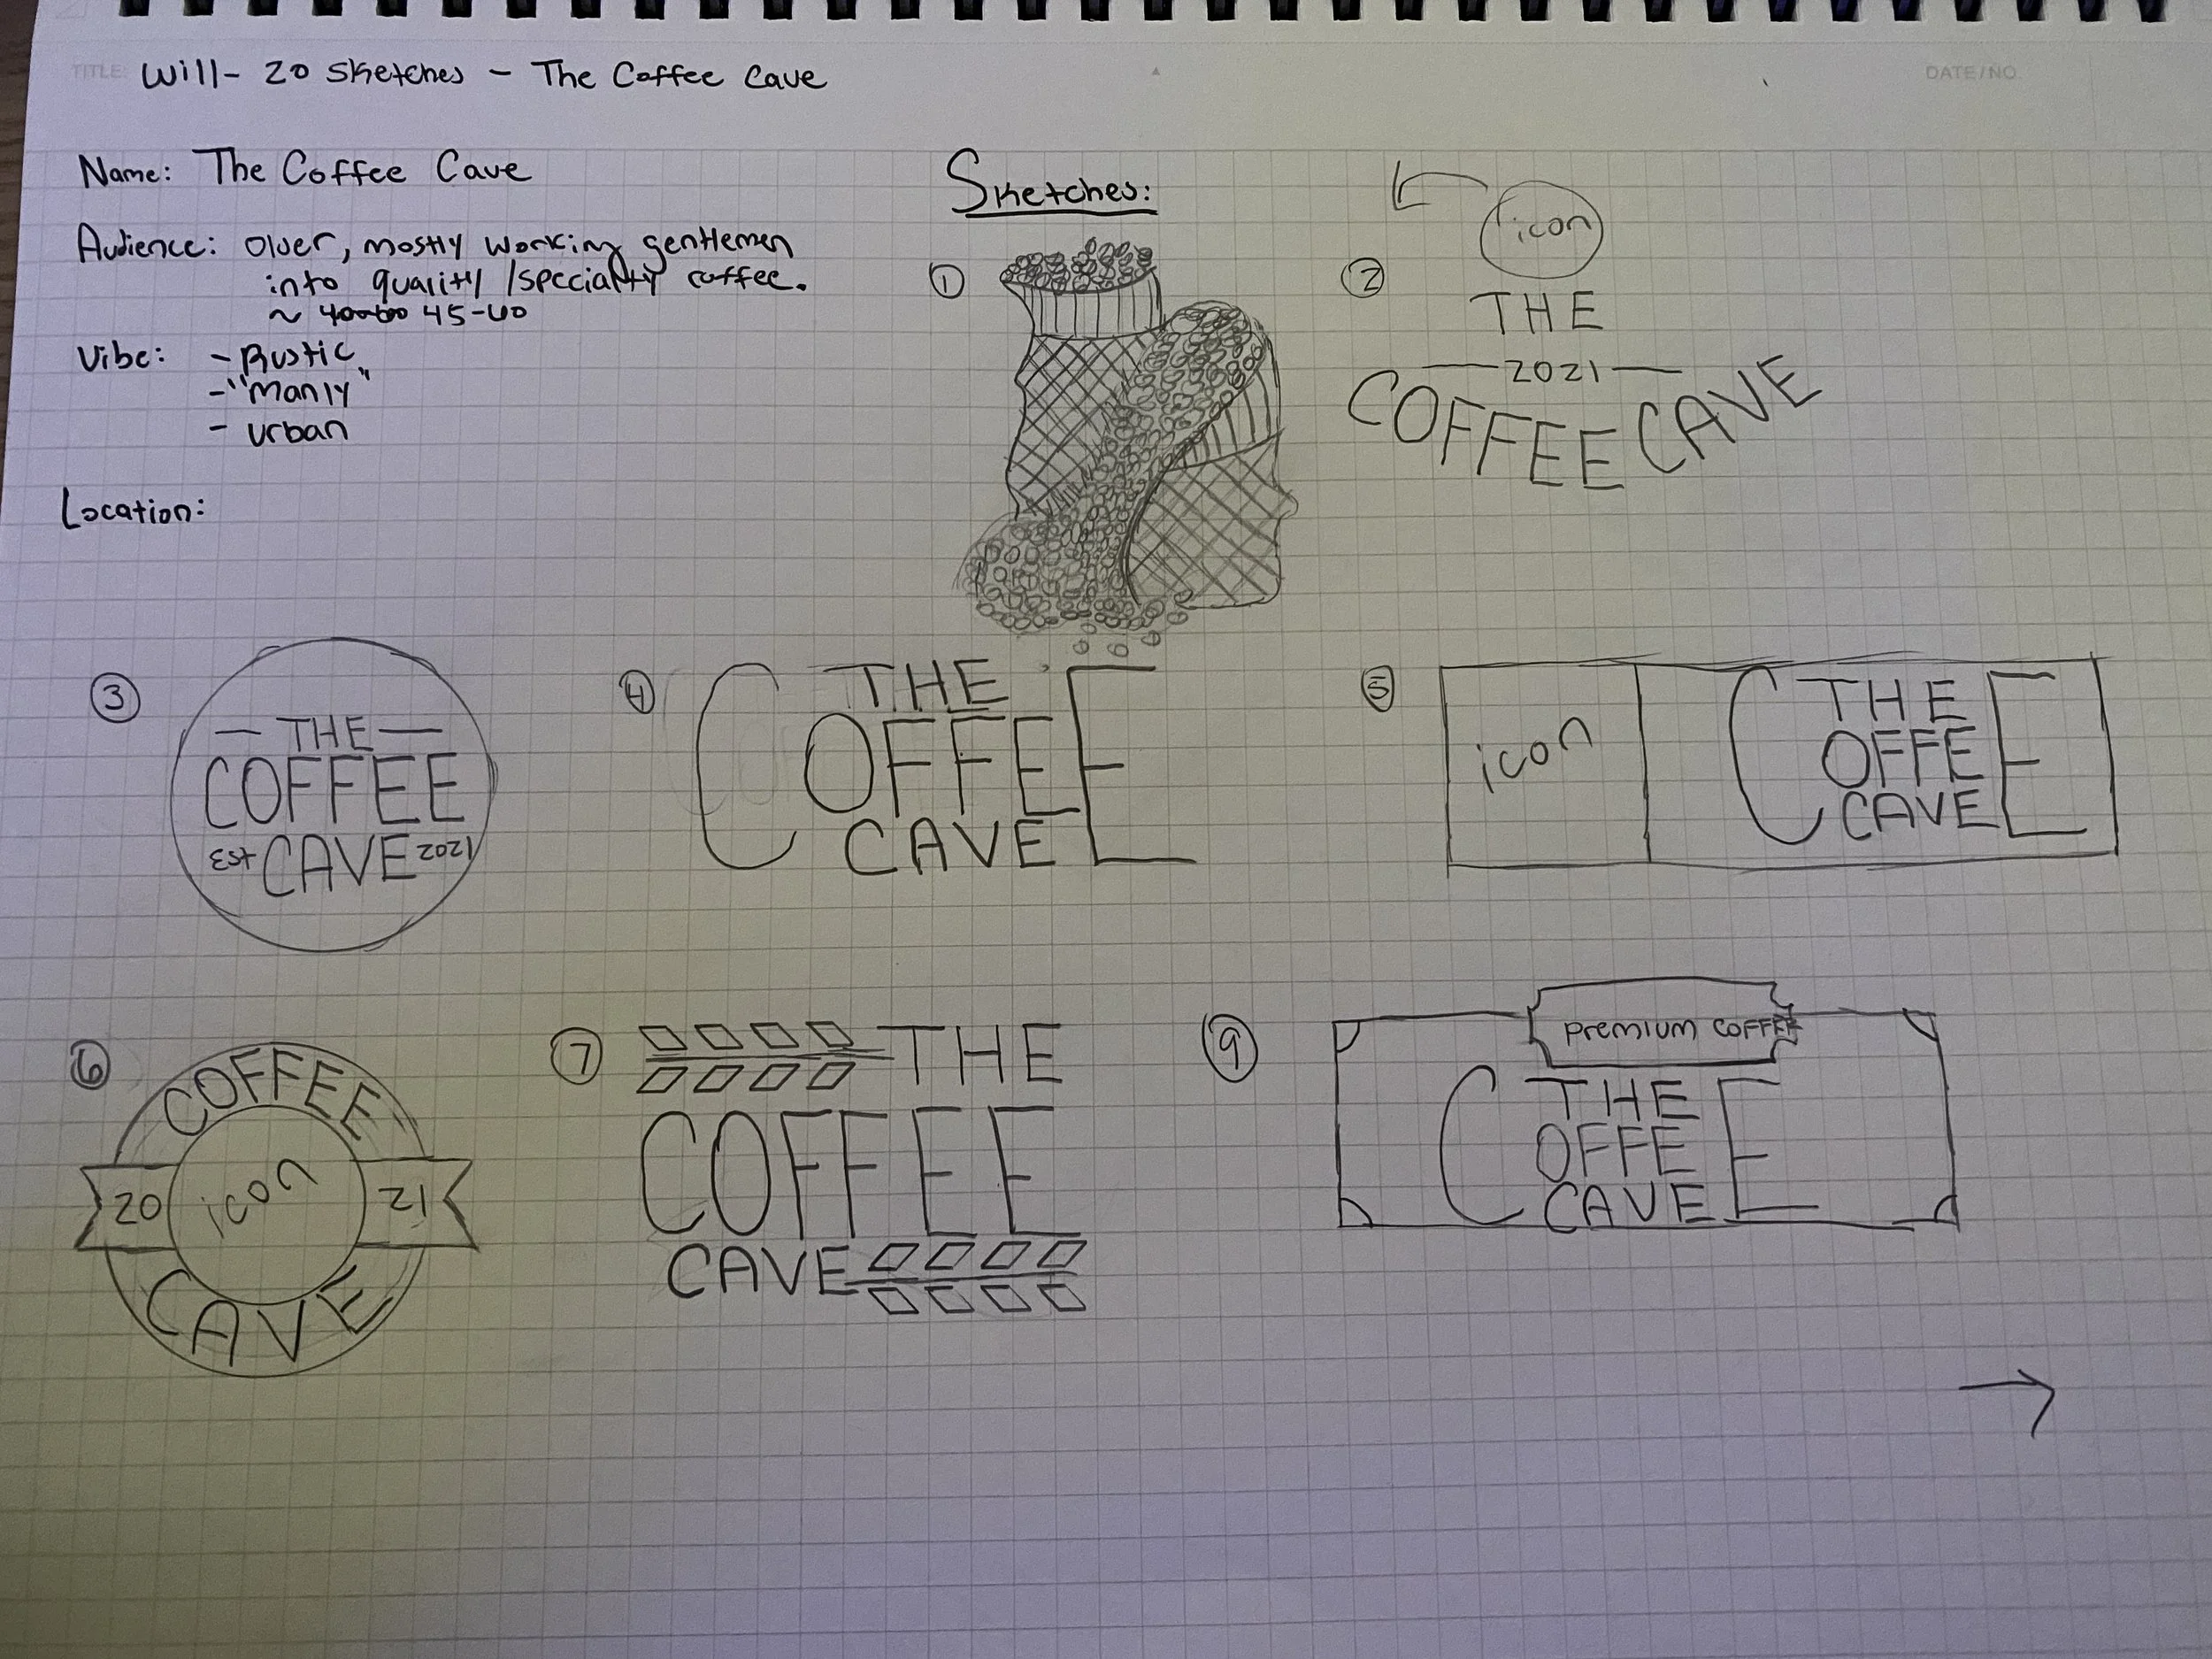 TITLE: Will - 20 Sketches - The Coffee Cave
DATE/NO.
Name: The Coffee Cave
Audience: Older, mostly working gentlemen
into quality/specialty coffee.
~ 45-60
Vibe: - Rustic
- "Manly"
- urban
Location:
Sketches:
1
2
icon
THE
2021
COFFEE CAVE
3
THE
COFFEE
Est CAVE 2021
4
THE
COFFEE
CAVE
5
icon
THE
COFFEE
CAVE
6
COFFEE
20 icon 21
CAVE
7
THE
COFFEE
CAVE
9
Premium COFFEE
THE
COFFEE
CAVE